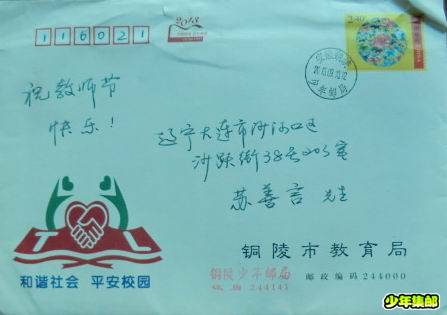 116021
2.40
祝教师节
快乐！
辽宁大连市沙河口区
沙跃街38号203室
苏善言 先生
TL
和谐社会 平安校园
铜陵市教育局
铜陵少年邮局
244141
邮政编码 244000
少年集邮